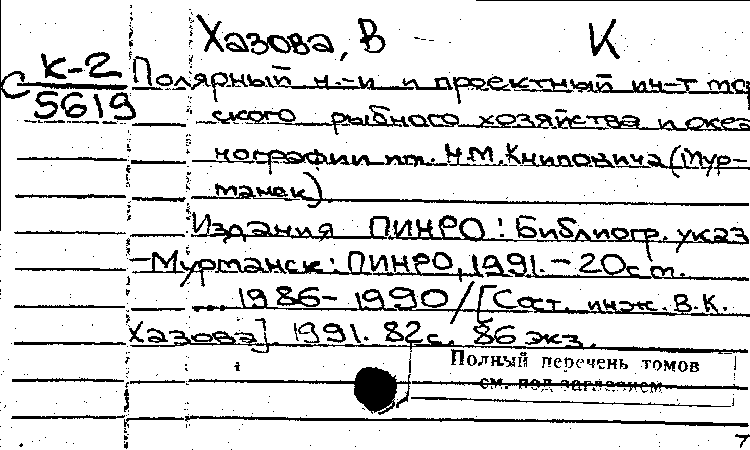 Хазова, В К
С К-2 Полярный н.-и и проектный ин-т мор
5619 ского рыбного хозяйства и океа
нографии им. Н.М.Книповича (Мур-
манск).
Издания ПИНРО: Библиогр. указ
- Мурманск: ПИНРО, 1991. - 20см.
... 1986- 1990 / [Сост. инж. В.К.
Хазова]. 1991. 82с. 86 экз.
Полный перечень томов
см. под заглавием
7